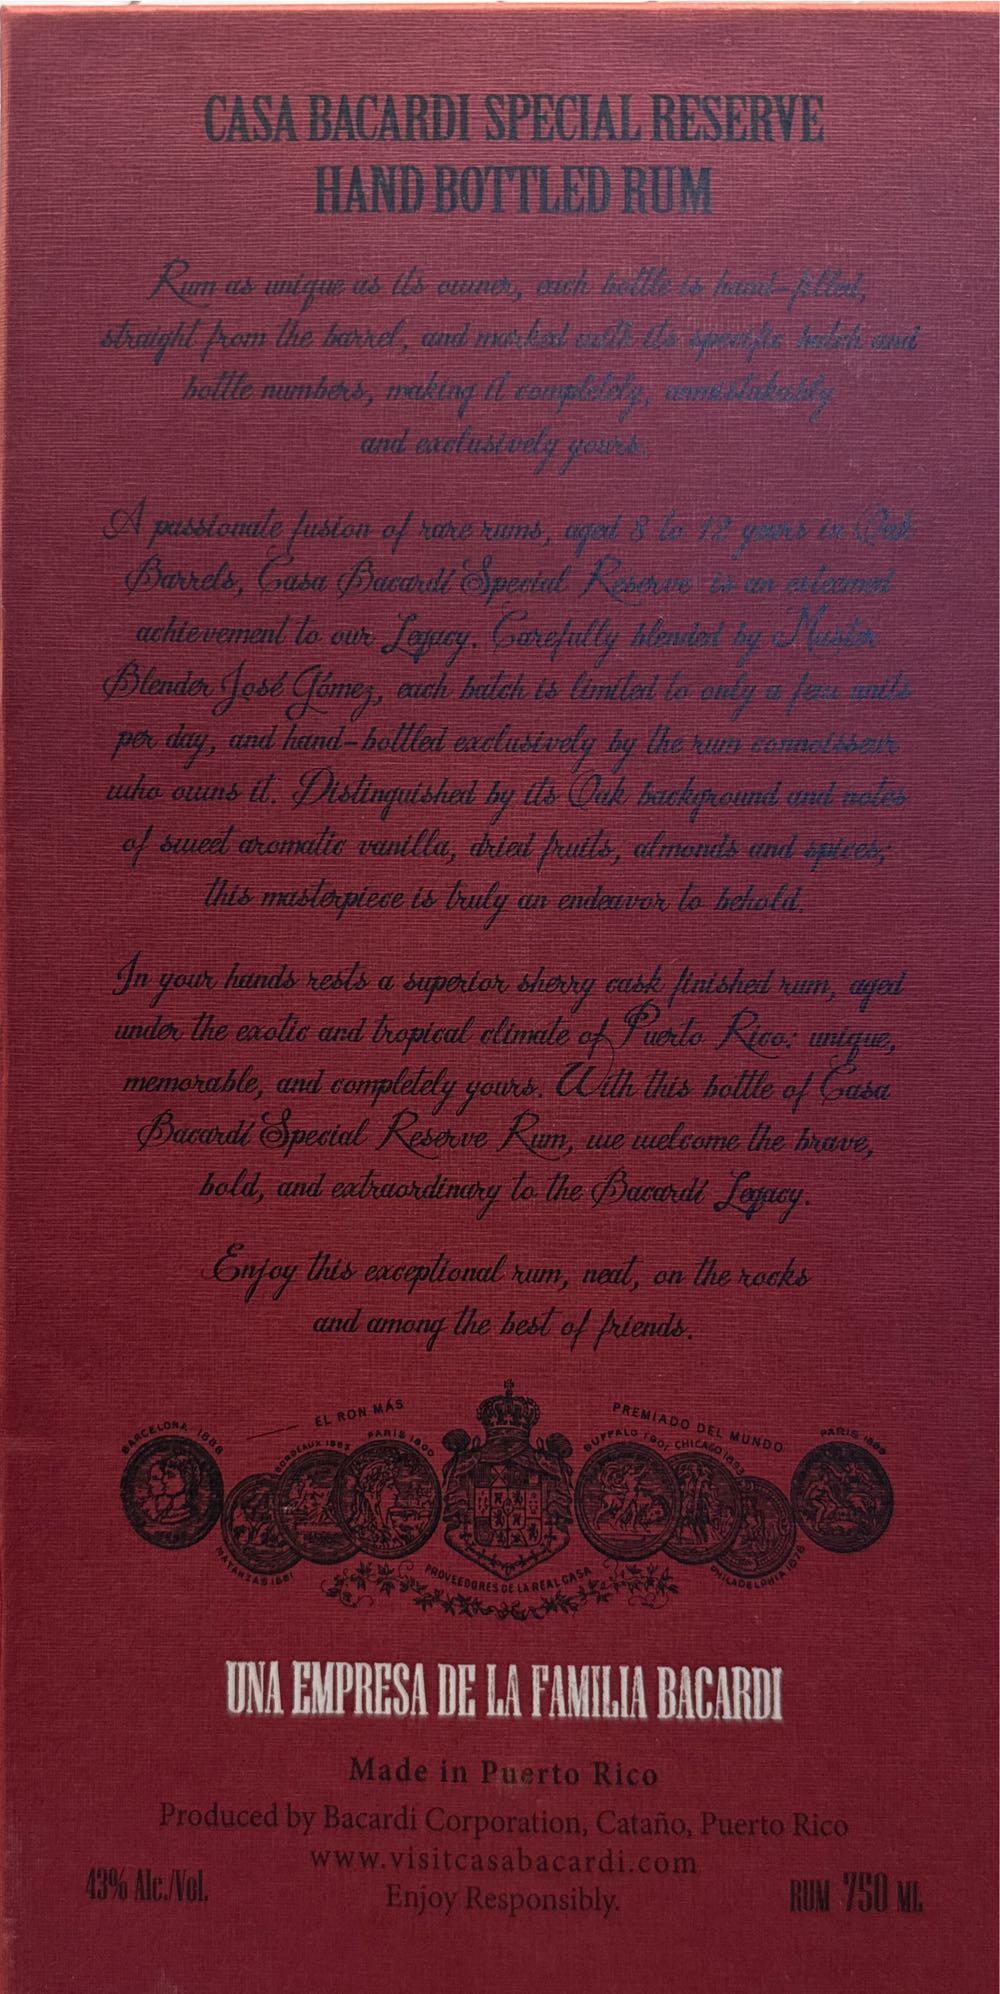 CASA BACARDI SPECIAL RESERVE
HAND BOTTLED RUM
Rum as unique as its owner, each bottle is hand-filled,
straight from the barrel, and marked with its specific batch and
bottle numbers, making it completely, unmistakably
and exclusively yours.
A passionate fusion of rare rums, aged 8 to 12 years in Oak
Barrels, Casa Bacardí Special Reserve is an esteemed
achievement to our Legacy. Carefully blended by Master
Blender José Gómez, each batch is limited to only a few units
per day, and hand-bottled exclusively by the rum connoisseur
who owns it. Distinguished by its Oak background and notes
of sweet aromatic vanilla, dried fruits, almonds and spices;
this masterpiece is truly an endeavor to behold.
In your hands rests a superior sherry cask finished rum, aged
under the exotic and tropical climate of Puerto Rico: unique,
memorable, and completely yours. With this bottle of Casa
Bacardí Special Reserve Rum, we welcome the brave,
bold, and extraordinary to the Bacardí Legacy.
Enjoy this exceptional rum, neat, on the rocks
and among the best of friends.
EL RON MÁS PREMIADO DEL MUNDO
BARCELONA 1888 BORDEAUX 1895 PARIS 1900 BUFFALO 1901 CHICAGO 1893 PARIS 1889
MATANZAS 1881 PROVEEDORES DE LA REAL CASA PHILADELPHIA 1876
UNA EMPRESA DE LA FAMILIA BACARDI
Made in Puerto Rico
Produced by Bacardi Corporation, Cataño, Puerto Rico
www.visitcasabacardi.com
43% Alc./Vol. Enjoy Responsibly. RUM 750 ML